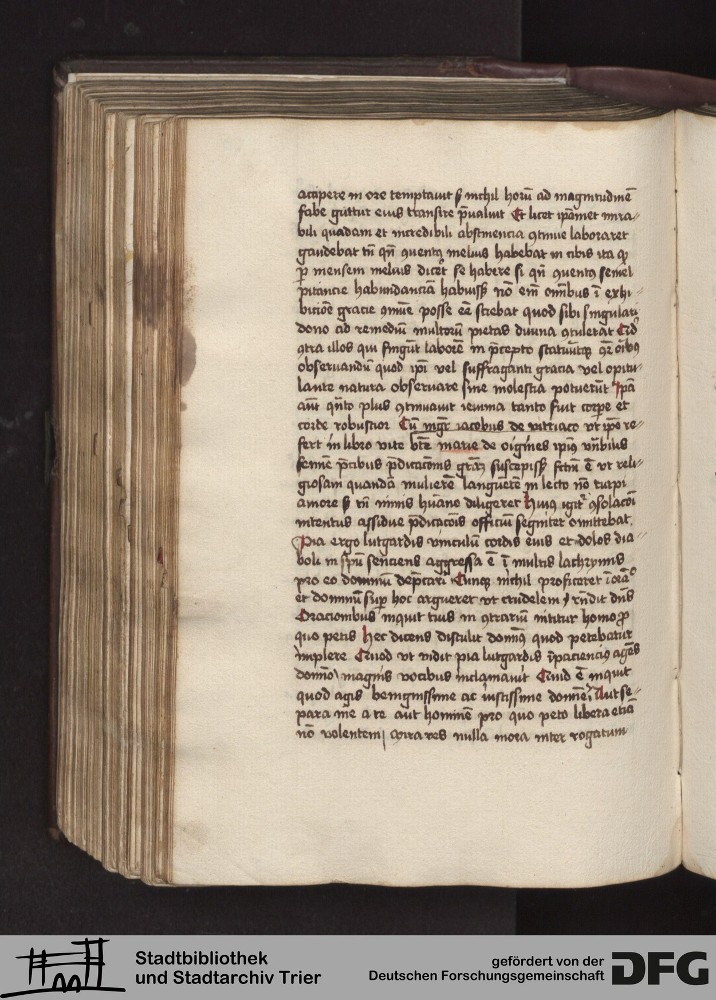 accipere in ore temptauit sꝫ nichil horū ad magnitudinē
fabe guttur eius transire p̄ualuit Et licet ip̄amet mira-
bili quadam et incredibili abstinencia ꝯtinue laboraret
gaudebat tn̄ qn̄ ꝯuentꝰ melius habebat in cibis ita qꝫ
p̱ mensem melius dicēt se habere si qn̄ ꝯuentꝰ semel
pitantie habundanciā habuissꝫ nō em̄ om̄ibus ī exhi-
bicōne gracie ꝯmūe posse eē sciebat quod sibi singulari
dono ad remediū multorū pietas diuina ꝯtulerat Et
ꝯtra illos qui fingūt laborē in p̄cepto
obseruandū quod ip̄i vel suffraganti gracia vel opitu-
lante natura obseruare sine molestia potuerūt Ip̄a
aūt qn̄to plus ꝯtinuauit ieiunia tanto fuit corpe et
corde robustior Cū mgr̄ iacobus de vittiaco vt ip̄e re-
fert in libro vite btē marie de oignies ipiꝰ vn̄bilis
femīe p̄cibus p̄dicacōnis grām suscepissꝫ fctm̄ ē vt reli-
giosam quandā mulierē languentē in lecto nō turpi
amore sꝫ tn̄ nimis hūano diligeret Huiꝰ igit ꝯsolacōi
intentus assidue p̄dicacōis officiū segniter omittebat.
Pia ergo lutgardis vinculū cordis eius et dolos dia-
boli in spū senciens aggressa ē ī multis lachrymis
pro eo dominū dep̄cari Cunqꝫ nichil proficeret
et dominū sup hoc argueret vt crudelem r̄ndit dn̄s
Oracionibus inquit tuis in ꝯtrariū nititur homo p̱
quo petis Hec dicens distulit domn̄s quod petebatur
implere Quod vt vidit pia lutgardis īpaciencius agēs
domīo magnis vocibus inclamauit Quid ē inquit
quod agis benignissime ac iustissime domine Aut se-
para me a te aut hominē pro quo peto libera etiā
nō volentem Mira res nulla mora inter rogatum
Stadtbibliothek
und Stadtarchiv Trier
gefördert von der
Deutschen Forschungsgemeinschaft
DFG